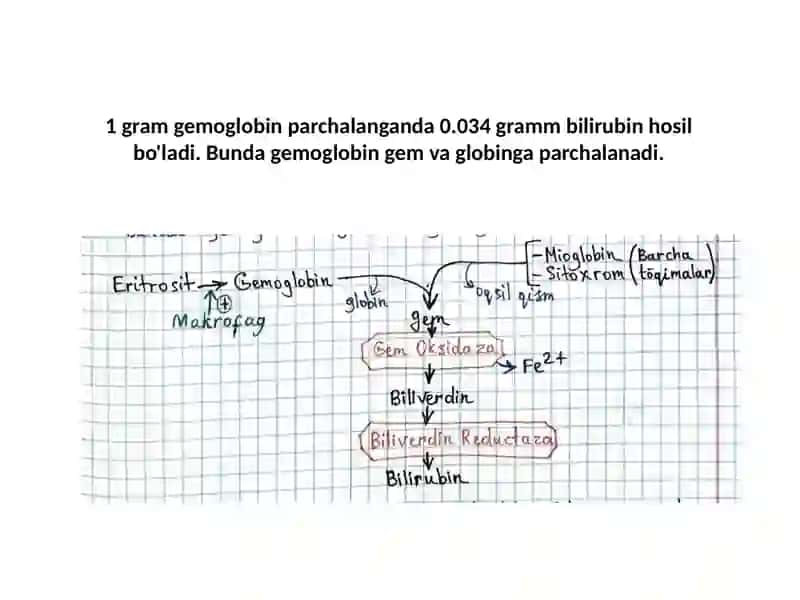 1 gram gemoglobin parchalanganda 0.034 gramm bilirubin hosil
bo'ladi. Bunda gemoglobin gem va globinga parchalanadi.
Eritrosit → Gemoglobin
Makrofag
⊕
globin
-Mioglobin (Barcha
-Sitoxrom to'qimalar)
oqsil qism
gem
Gem Oksidaza
Fe2+
Billverdin
Biliverdin Reductaza
Bilirubin